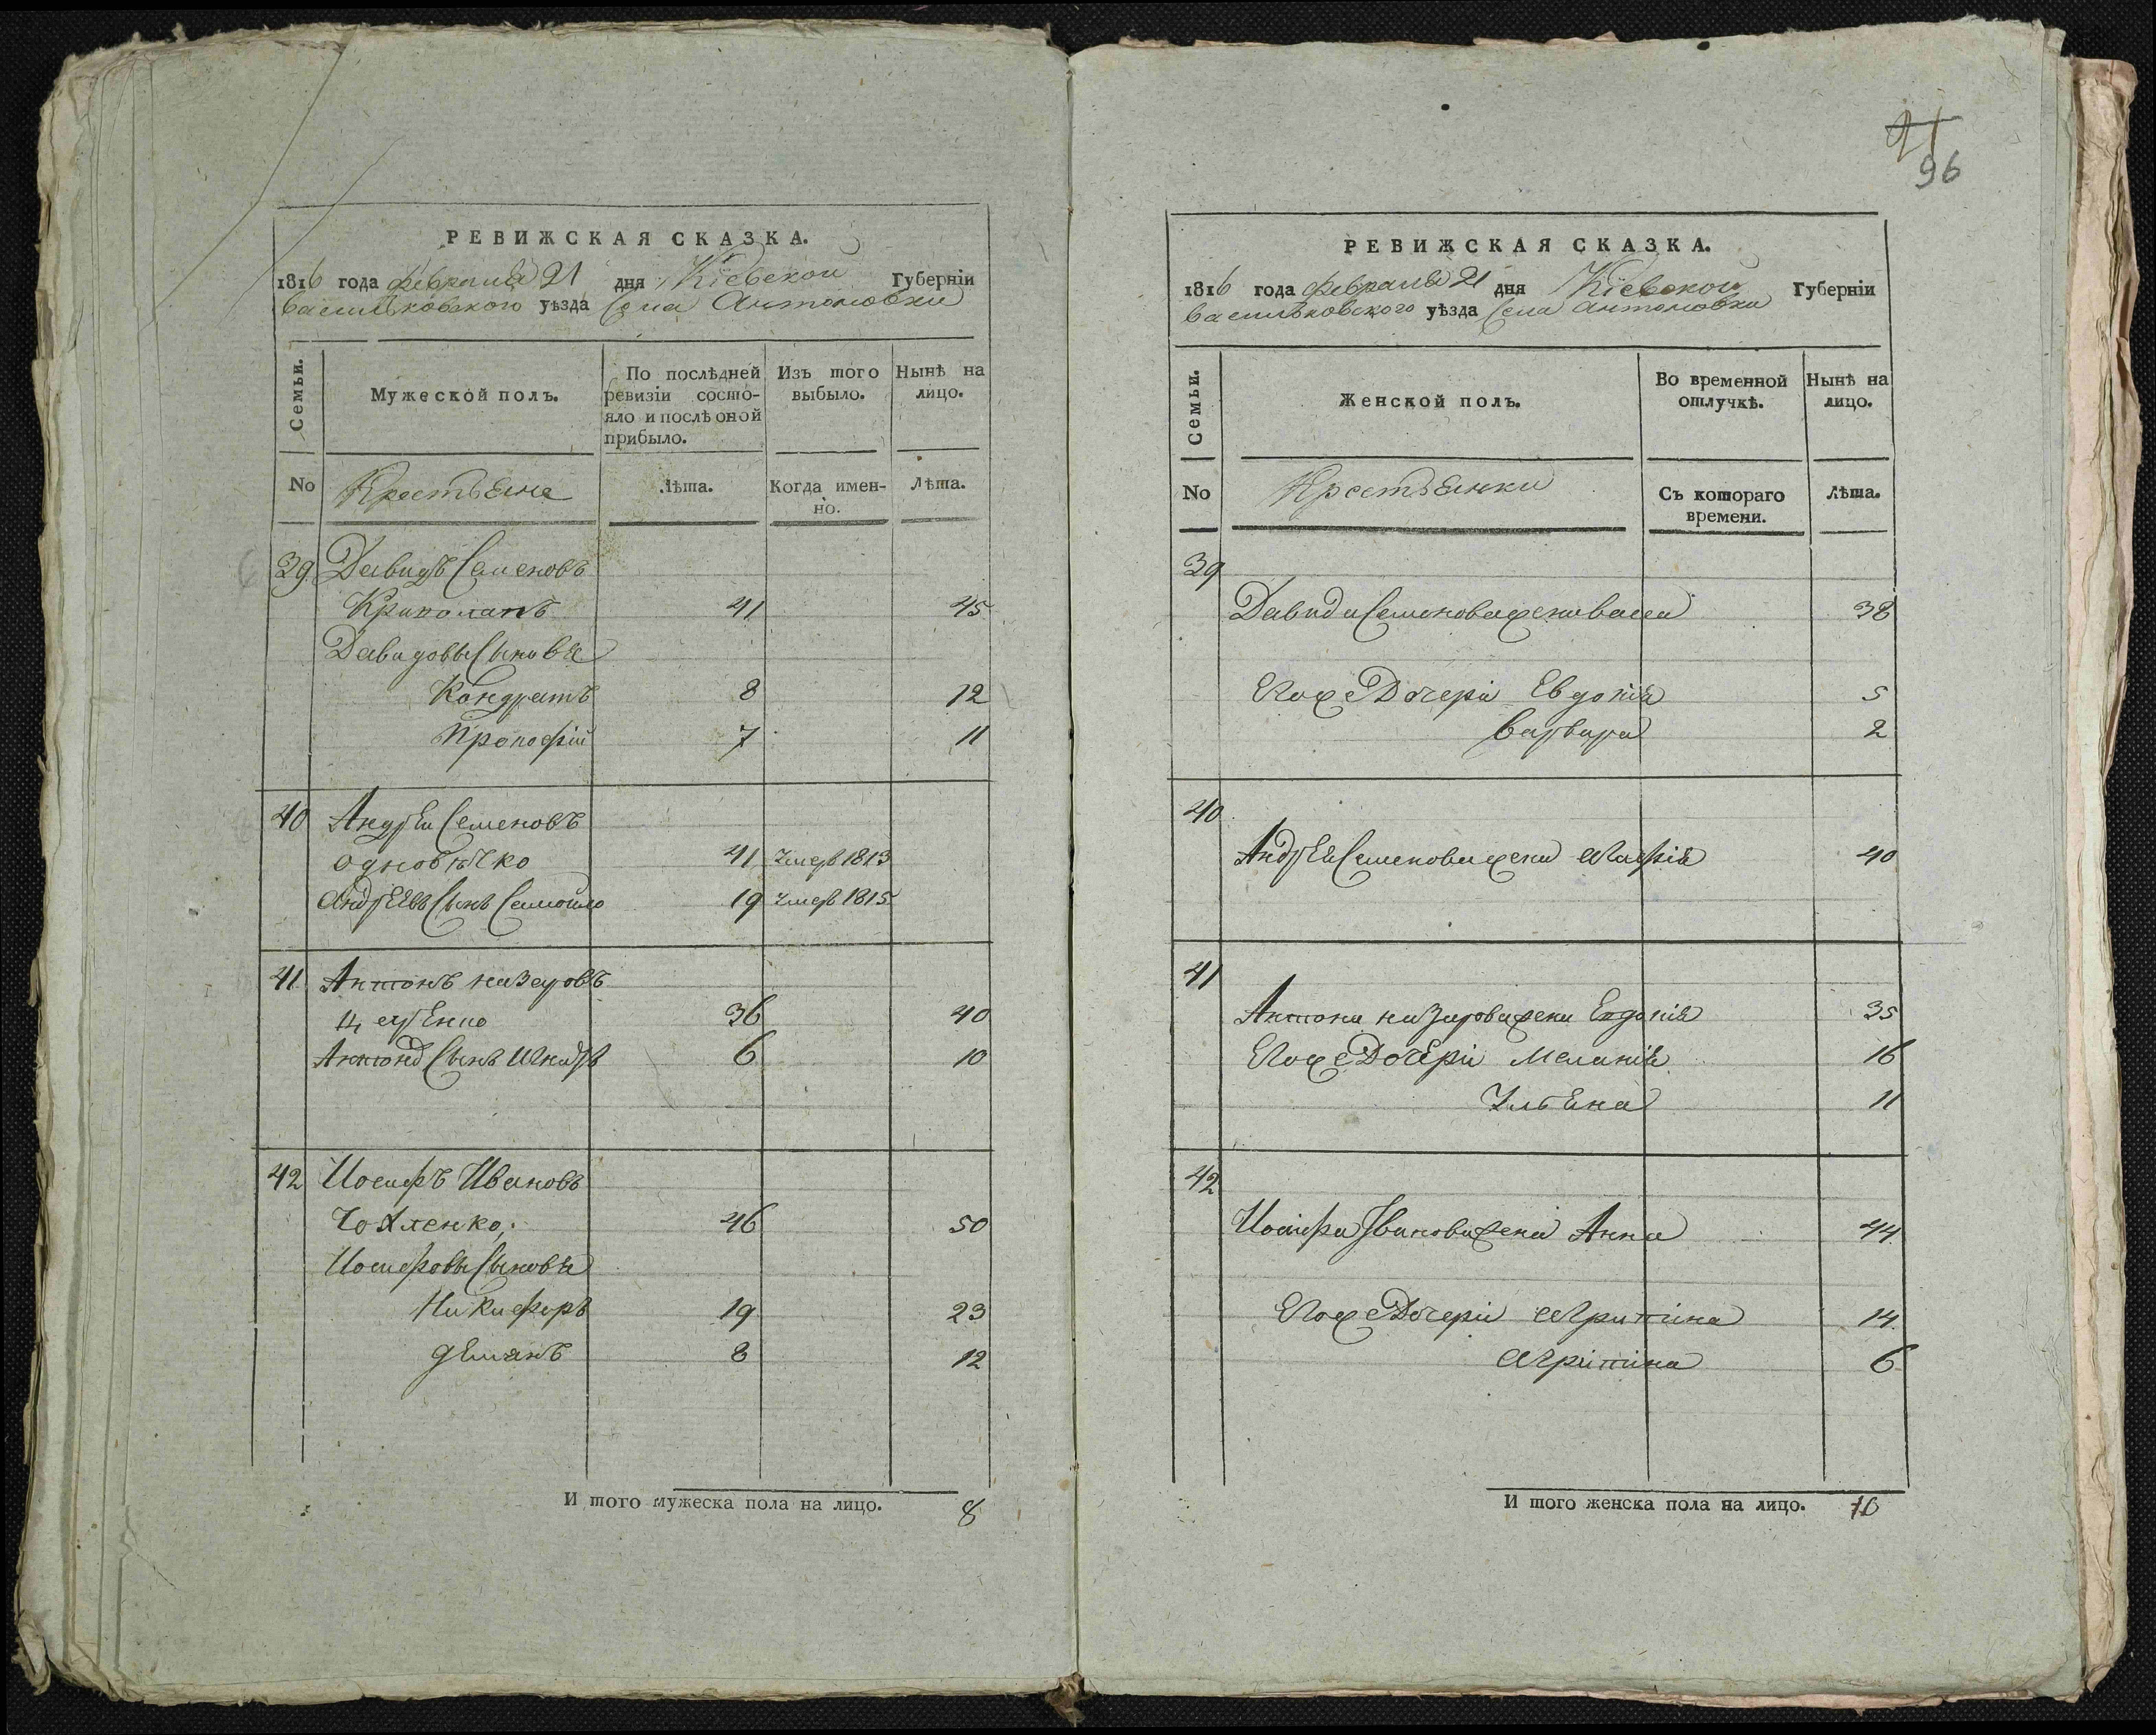 РЕВИЖСКАЯ СКАЗКА.
1816 года февраля 21 дня Кіевской Губерніи
Васильковского уѣзда села Антоновки
Семьи.
Мужеской полъ.
По послѣдней ревизіи состо-
яло и послѣ оной
прибыло.
Изъ того
выбыло.
Нынѣ на
лицо.
No
Крестьяне
Лѣта.
Когда имен-
но.
Лѣта.
39 Давидъ Семеновъ
41 45
Давидовы Сыновья
Кондратъ 8 12
Прокофій 7 11
40 Андрей Семеновъ
41 Умеръ 1813
Андреевъ Сынъ Самойло 19 Умеръ 1815
41 Антонъ Назаровъ
36 40
Антона Сынъ 6 10
42 Иосифъ Ивановъ
46 50
Иосифовы Сыновья
Никифоръ 19 23
Демянъ 8 12
И того мужеска пола на лицо. 8
21
96
РЕВИЖСКАЯ СКАЗКА.
1816 года февраля 21 дня Кіевской Губерніи
Васильковского уѣзда села Антоновки
Семьи.
Женской полъ.
Во временной
отлучкѣ.
Нынѣ на
лицо.
No
Крестьянки
Съ котораго
времени.
Лѣта.
39
Давида Семенова жена Васса 38
Егоже Дочери Евдокія 5
Варвара 2
40
Андрея Семенова жена 40
41
Антона Назарова жена Евдокія 35
Егоже Дочери Меланія 16
Ульяна 11
42
Иосифа Иванова жена Анна 44
Егоже Дочери Агрипина 14
Агрипина 6
И того женска пола на лицо. 10